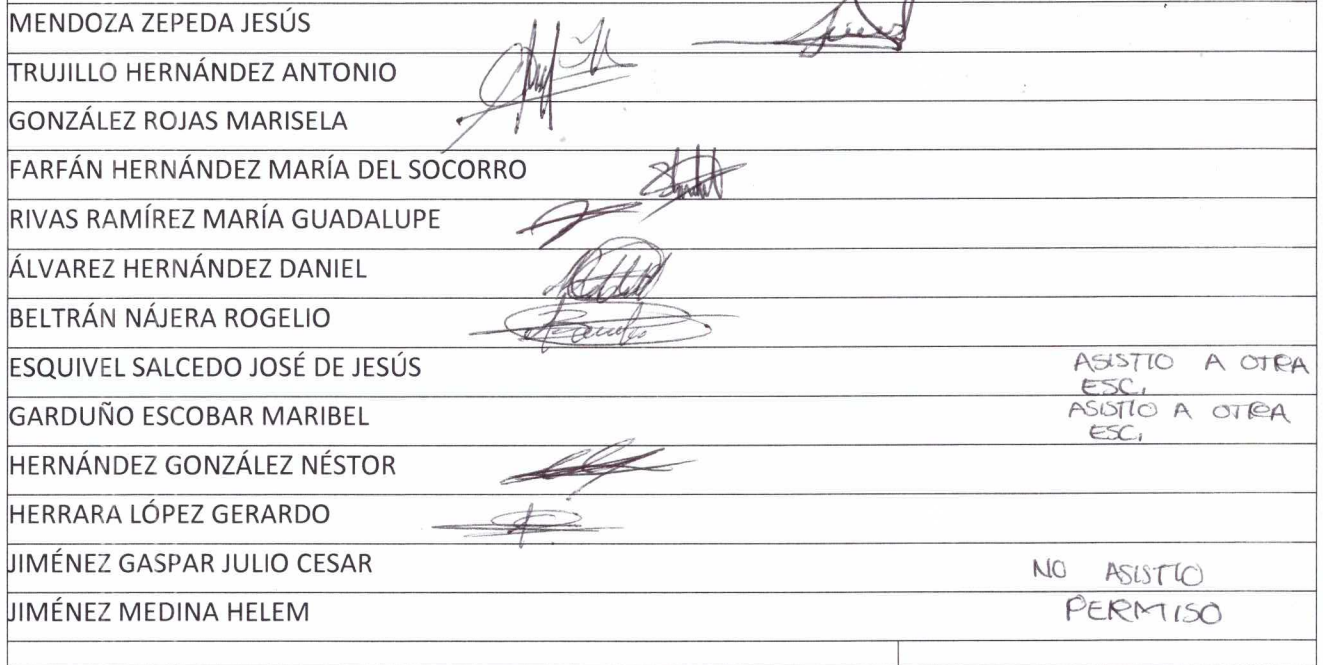 MENDOZA ZEPEDA JESÚS
TRUJILLO HERNÁNDEZ ANTONIO
GONZÁLEZ ROJAS MARISELA
FARFÁN HERNÁNDEZ MARÍA DEL SOCORRO
RIVAS RAMÍREZ MARÍA GUADALUPE
ÁLVAREZ HERNÁNDEZ DANIEL
BELTRÁN NÁJERA ROGELIO
ESQUIVEL SALCEDO JOSÉ DE JESÚS ASISTIO A OTRA
ESC.
GARDUÑO ESCOBAR MARIBEL ASISTIO A OTRA
ESC.
HERNÁNDEZ GONZÁLEZ NÉSTOR
HERRARA LÓPEZ GERARDO
JIMÉNEZ GASPAR JULIO CESAR NO ASISTIO
JIMÉNEZ MEDINA HELEM PERMISO